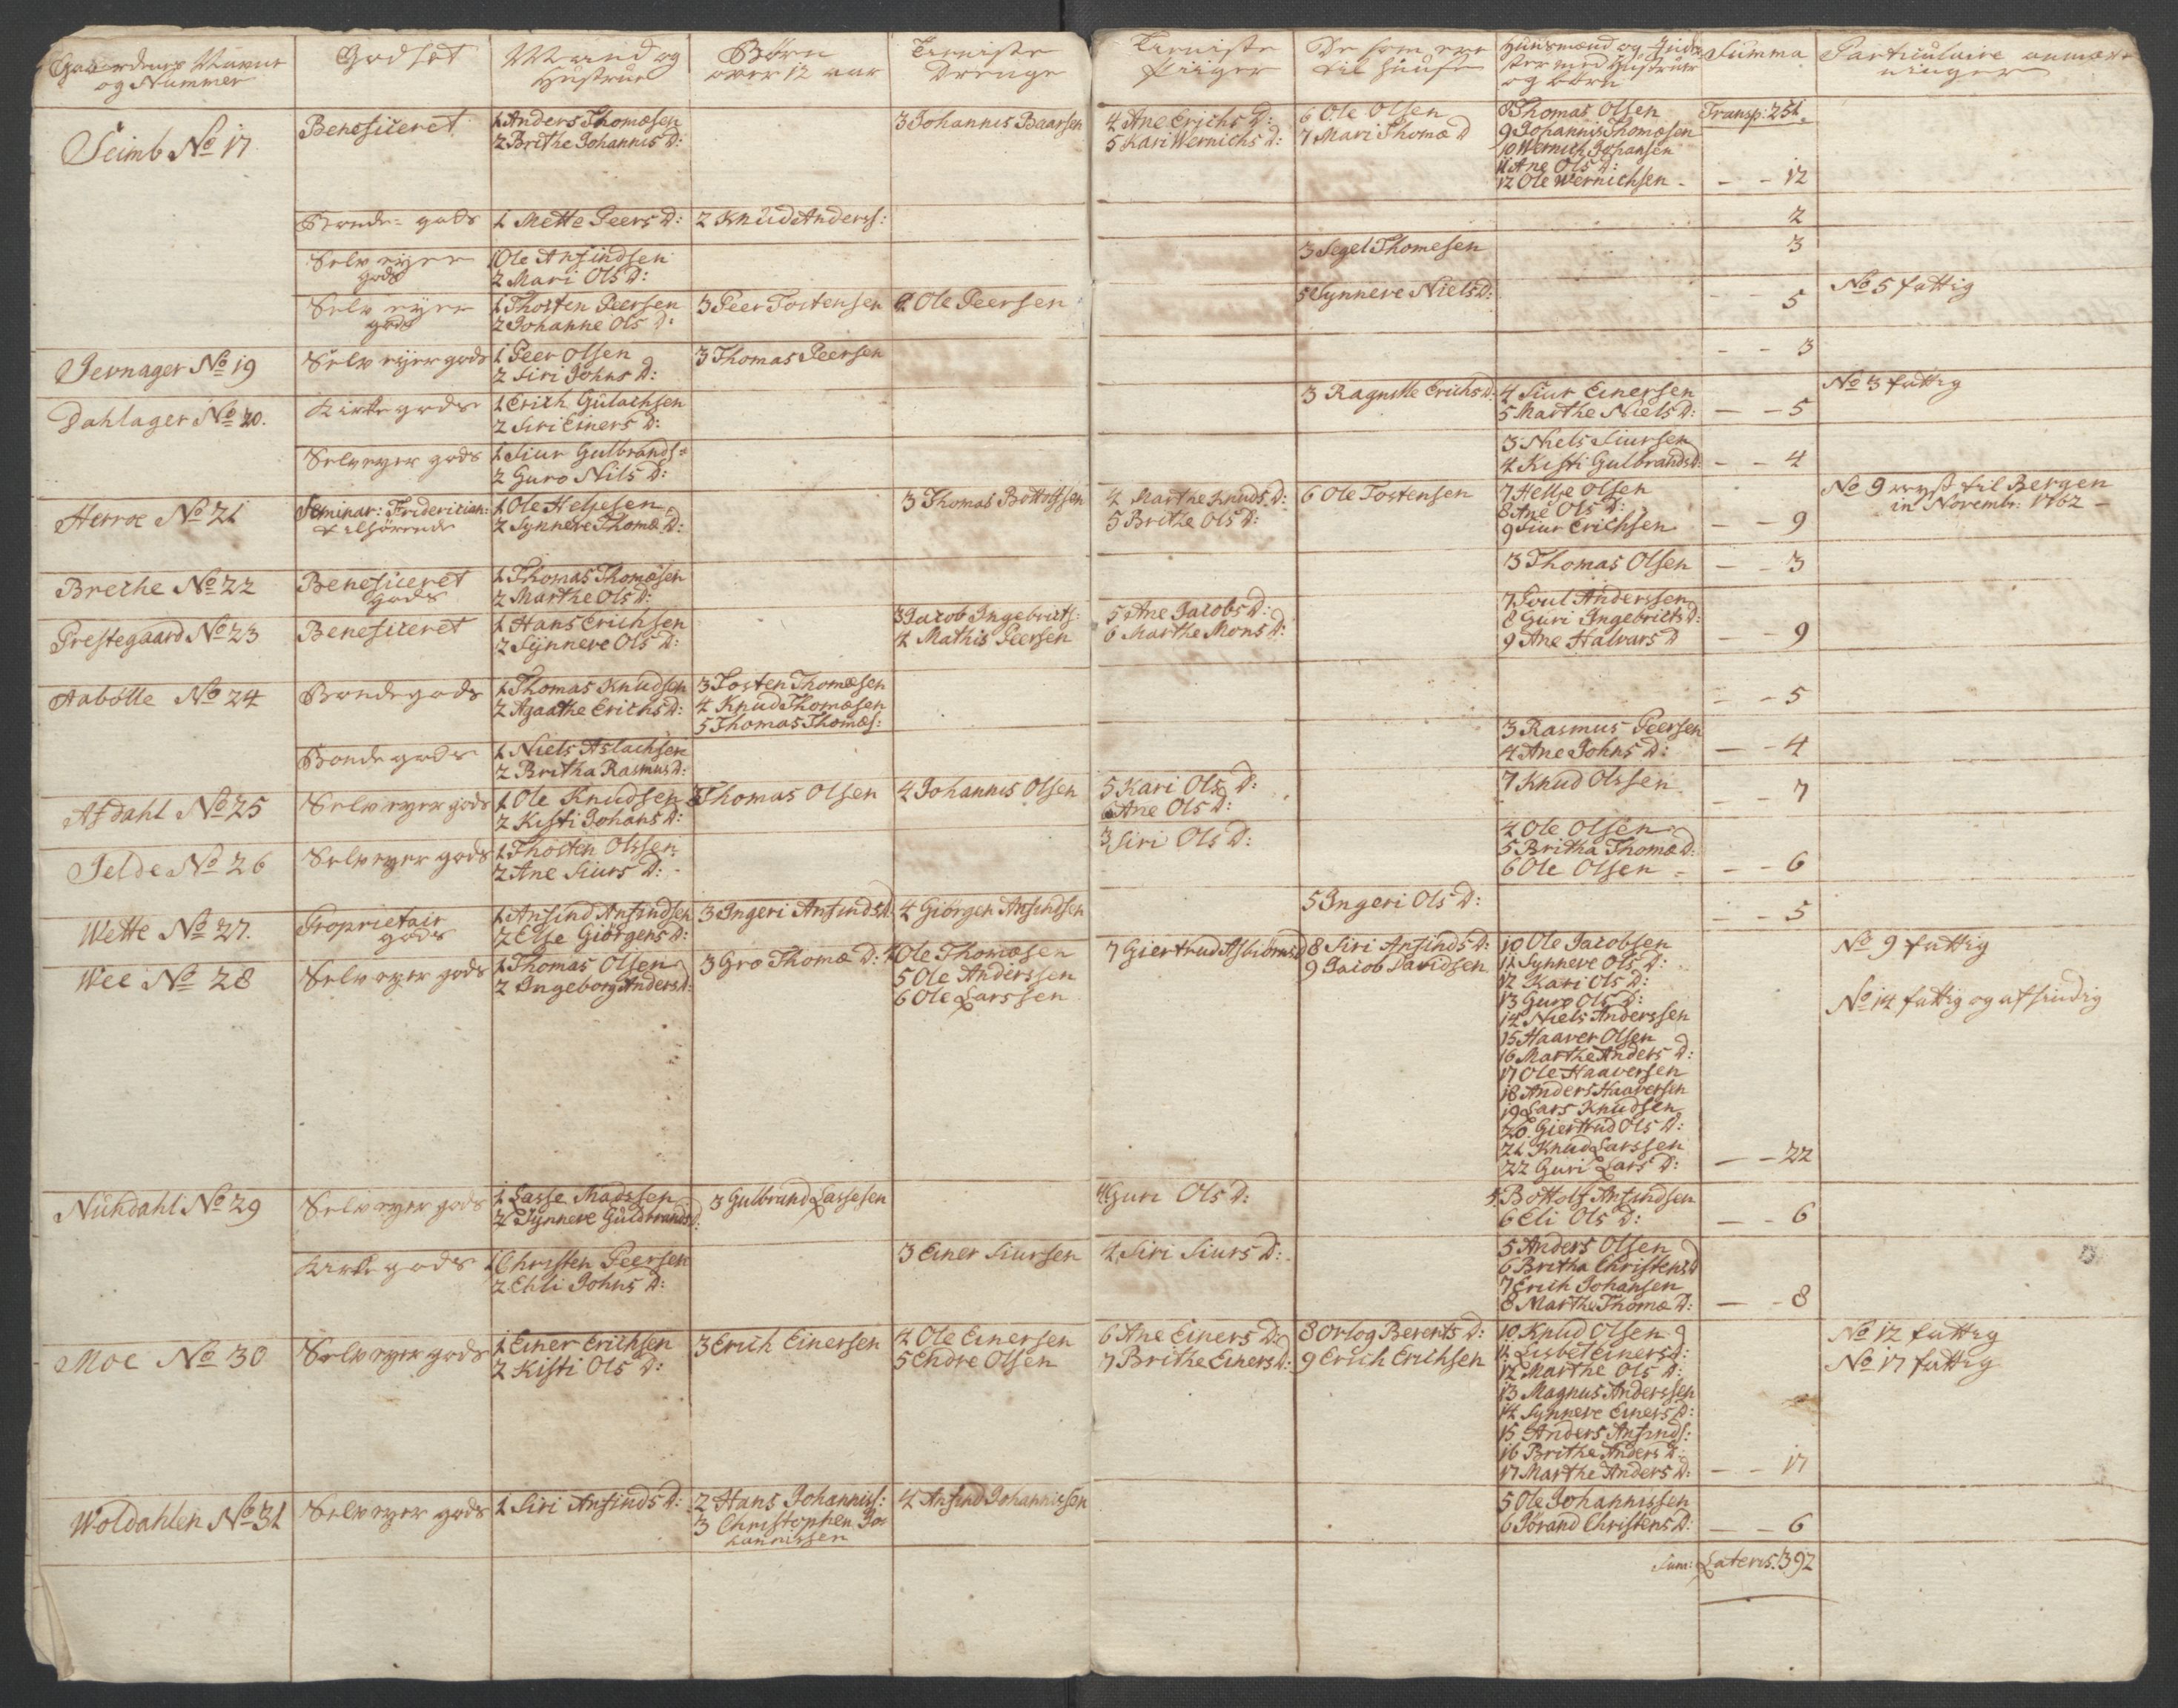 Gaardenes Navne og Nummer | Godset | Mand og Hustrue | Børn over 12 aar | Tieniste Drenge | Tieniste Piiger | De som ere til Huuse | Huusmænd og Inderster med Hustruer og børn | Summa | Particulaire anmærkninger
Seimb No 17 | Beneficeret | 1 Anders Thomæsen | 3 Johannis Baarsen | 4 Ane Erichs D: | 6 Ole Olsen | 8 Thomas Olsen | Transp: 251.
2 Brithe Johannis D: | 5 Kari Wernichs D: | 7 Mari Thomæ D | 9 Johannis Thomæsen
10 Wernich Johansen
11 Ane Ols D:
12 Ole Wernichsen - | - - 12
Bonde-gods | 1 Mette Peers D: | 2 Knud Anderss: | 2
Selv eyer | 1 Ole Ansindsen | 3 Segel Thomesen | 3
gods | 2 Mari Ols D:
Selv eyer | 1 Thosten Peersen | 3 Peer Tostensen | 4 Ole Peersen | 5 Synneve Niels D: | - - 5 | No 5 fattig
gods | 2 Johanne Ols D:
Jevnager No 19 | Selv eyer gods | 1 Peer Olsen | 3 Thomas Peersen | - - 3
2 Siri Johns D:
Dahlager No 20. | Kirke gods | 1 Erich Gulachsen | 3 Ragnille Erichs D: | 4 Siur Einersen | No 3 fattig
2 Siri Einers D: | 5 Marthe Niels D: | - - 5
Selv eyer gods | 1 Siur Gulbrands: | 3 Niels Siursen
2 Guro Nils D: | 4 Kisti Gulbrands D: | - - 4
Herroe No 21 | Seminar: Friderician: | 1 Ole Heljesen | 3 Thomas Bottolfsen | 4 Marthe Knuds D: | 6 Ole Tostensen | 7 Helje Olsen | No 9 reyst til Bergen
tilhørende | 2 Synneve Thomæ D: | 5 Brithe Ols D: | 8 Ane Ols D: | in Novembr: 1762 -
9 Siur Erichsen | - - 9
Breche No 22 | Beneficeret | 1 Thomas Thomæsen | 3 Thomas Olsen | - - 3
gods | 2 Marthe Ols D:
Prestegaard No 23 | Beneficeret | 1 Hans Erichsen | 3 Jacob Ingebricts: | 5 Ane Jacobs D: | 7 Poul Anderssen
2 Synneve Ols D: | 4 Mathis Peersen | 6 Marthe Mons D: | 8 Guri Ingebricts D:
9 Ane Halvars D | - - 9
Aabølle No 24 | Bonde gods | 1 Thomas Knudsen | 3 Tosten Thomæsen | - - 5
2 Agaathe Erichs D: | 4 Knud Thomæsen
5 Thomas Thomæs:
Bonde gods | 1 Niels Aslachsen | 3 Rasmus Peersen
2 Britha Rasmus D: | 4 Ane Johns D: | - - 4
Afdahl No 25 | Selv eyer gods | 1 Ole Knudsen | 3 Thomas Olsen | 4 Johannis Olsen | 5 Kari Ols D: | 7 Knud Olssen | - - 7
2 Kisti Johans D: | 6 Ane Ols D:
Jelde No 26 | Selv eyer gods | 1 Thosten Olssen | 3 Siri Ols D: | 4 Ole Olsen
2 Ane Siurs D: | 5 Britha Thomæ D:
6 Ole Olsen - | - - 6
Wette No 27. | Proprietair | 1 Ansind Ansindsen | 3 Ingeri Ansinds D. | 4 Giørgen Ansindsen | 5 Ingeri Ols D: | - - 5
gods | 2 Else Giørgens D:
Wee No 28 | Selv eyer gods | 1 Thomas Olsen | 3 Gro Thomæ D: | 4 Ole Thomæsen | 7 Giertrud Asbiørns D | 8 Siri Ansinds D: | 10 Ole Jacobsen | No 9 fattig
2 Ingeborg Anders D: | 5 Ole Anderssen | 9 Jacob Davidsen | 11 Synneve Ols D:
6 Ole Larssen | 12 Kari Ols D:
13 Guro Ols D: | No 14 fattig og afsindig
14 Niels Anderssen
15 Haaver Olsen
16 Marthe Anders D:
17 Ole Haaversen
18 Anders Haaversen
19 Lars Knudsen
20 Giertrud Ols D:
21 Knud Larssen
22 Guri Lars D: | - - 22
Nundahl No 29 | Selv eyer gods | 1 Lasse Madssen | 3 Gulbrand Lassesen | 4 Guri Ols D: | 5 Bottolf Ansindsen
2 Synneve Guldbrands D: | 6 Eli Ols D: | - - 6
Kirke gods | 1 Christen Peersen | 3 Einer Siursen | 4 Siri Siurs D: | 5 Anders Olsen
2 Ehli Johns D: | 6 Britha Christens D
7 Erich Johansen
8 Marthe Thomæ D: | - - 8
Moe No 30 | Selv eyer gods | 1 Einer Erichsen | 3 Erich Einersen | 4 Ole Einersen | 6 Ane Einers D: | 8 Orlog Berents D: | 10 Knud Olsen | No 12 fattig
2 Kisti Ols D: | 5 Endre Olsen | 7 Brithe Einers D: | 9 Erich Erichsen | 11 Lisbet Einers D: | No 17 fattig
12 Marthe Ols D:
13 Magnus Anderssen
14 Synneve Einers D:
15 Anders Ansinds:
16 Brithe Anders D:
17 Marthe Anders D: | - - 17
Woldahlen No 31 | Selv eyer gods | 1 Siri Ansinds D: | 2 Hans Johanniss: | 4 Ansind Johannissen | 5 Ole Johannissen
3 Christopher Jo- | 6 Jørand Christens D: | - - 6
hannissen
Sum: Lateris: 392